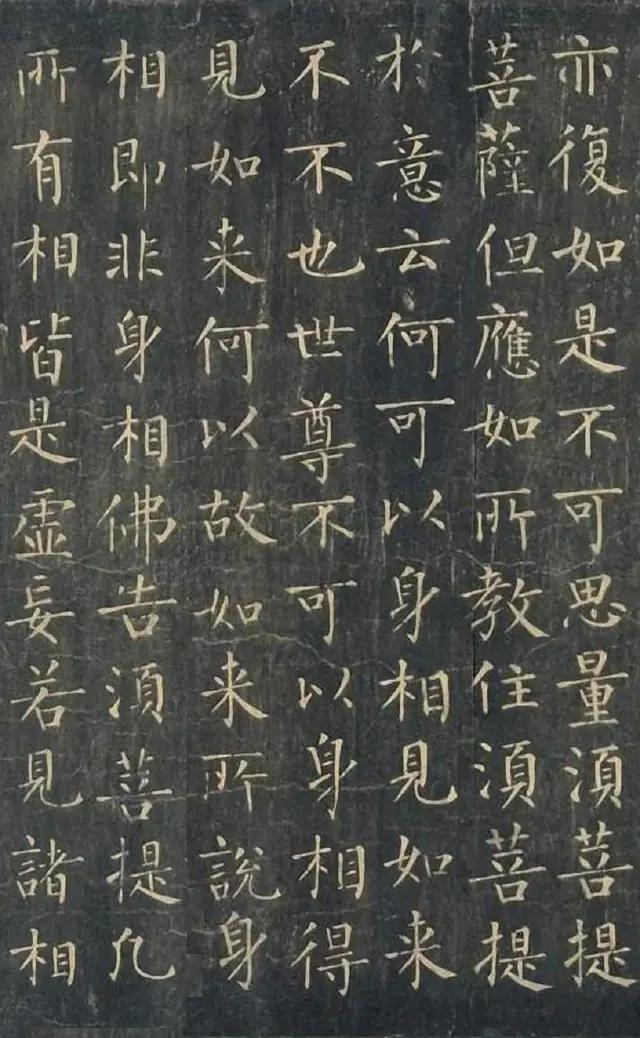 亦復如是不可思量須菩提
菩薩但應如所教住須菩提
於意云何可以身相見如来
不不也世尊不可以身相得
見如来何以故如来所說身
相即非身相佛告須菩提凡
所有相皆是虛妄若見諸相